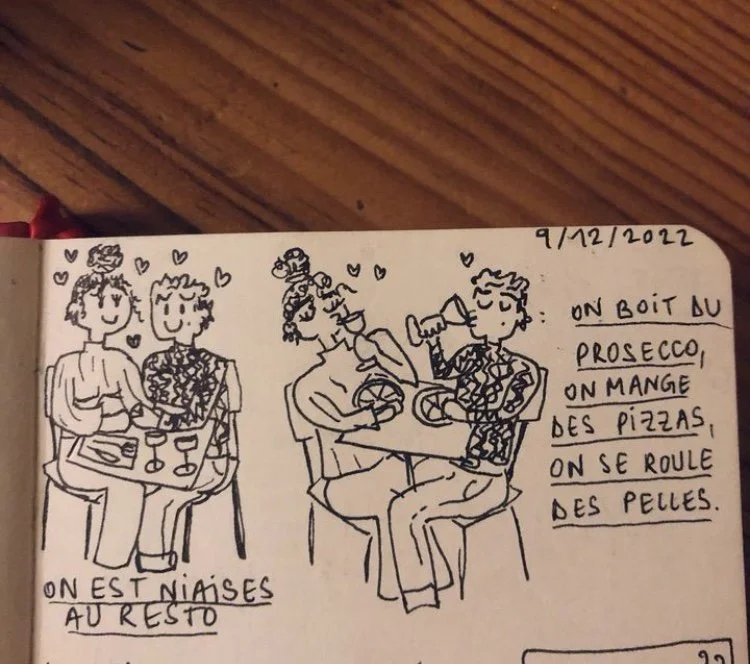 9/12/2022
ON EST NIAISES
AU RESTO
: ON BOIT DU
PROSECCO,
ON MANGE
DES PIZZAS,
ON SE ROULE
DES PELLES.